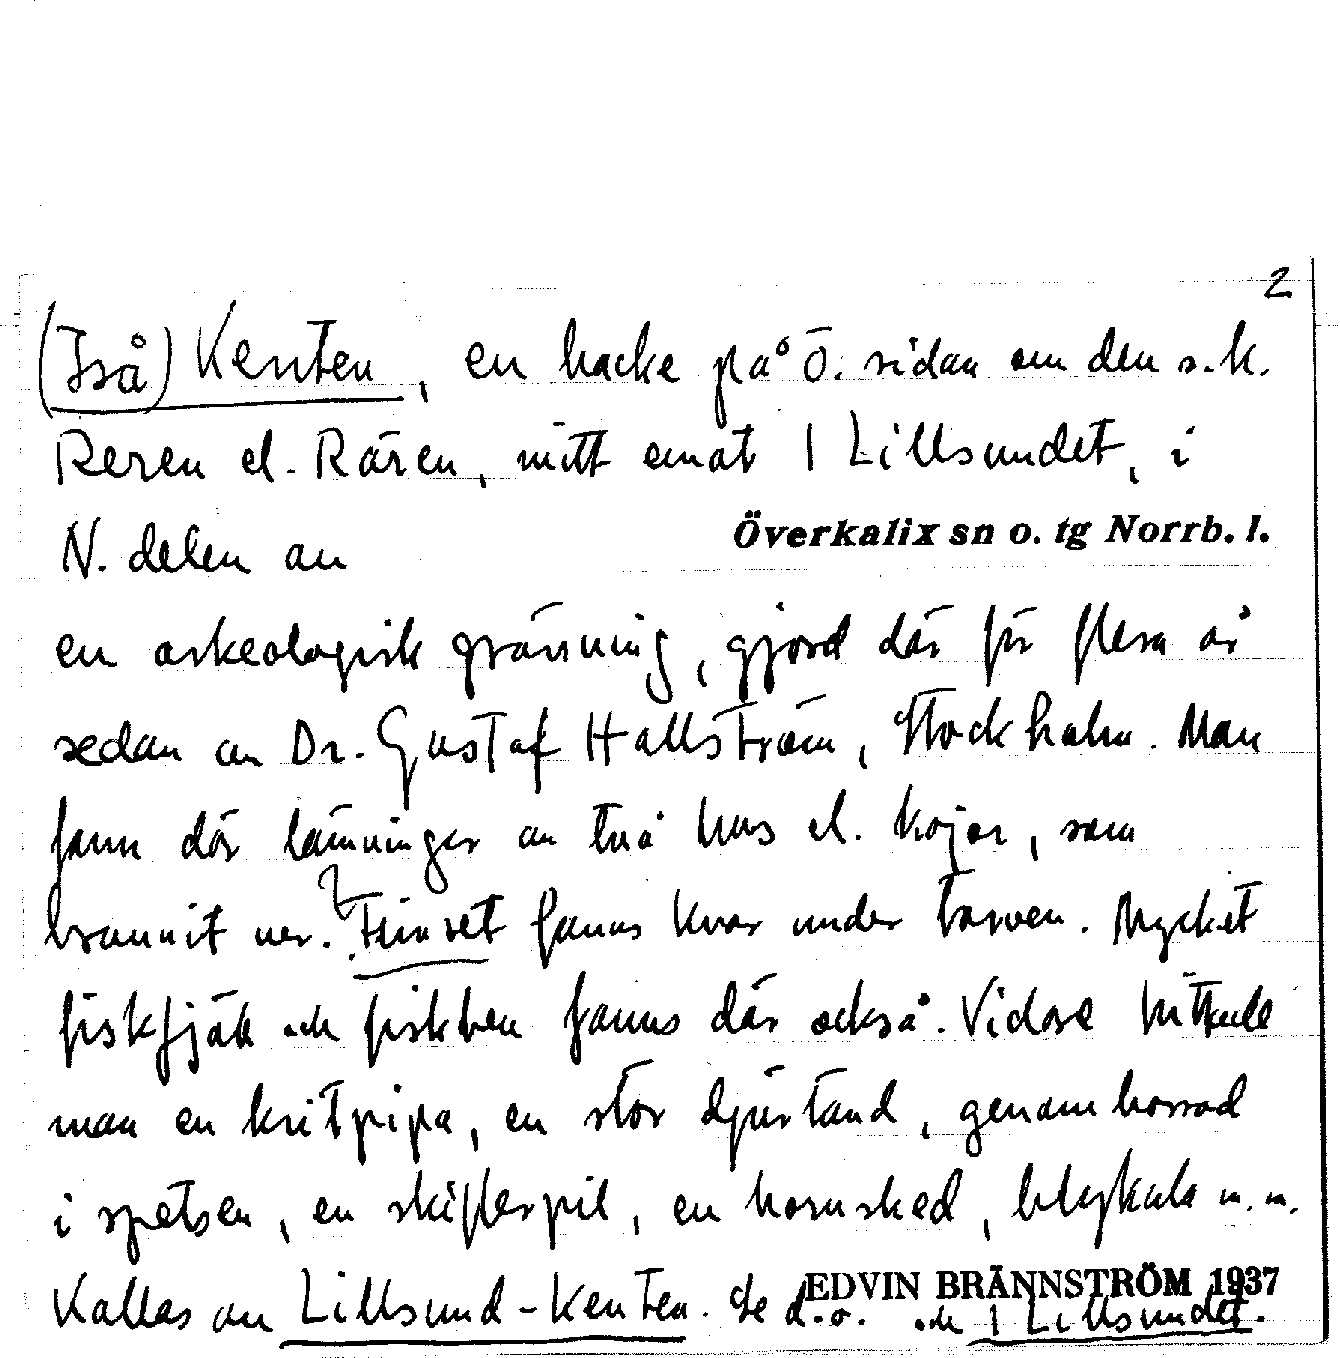 2
(Två) Kenten, en backe på ö. sidan om den s.k.
Reren el. Rären, mitt emot 1 Lillsundet, i
N. delen av
Överkalix sn o. tg Norrb. l.
en arkeologisk grävning, gjord där för flera år
sedan av Dr. Gustaf Hallström, Stockholm. Man
fann där lämningar av två hus el. kojor, som
brunnit ner. ? Timret fanns kvar under torven. Mycket
fiskfjäll och fiskben fanns där också. Vidare hittade
man en kritpipa, en stor djurtand, genomborrad
i spetsen, en skifferpil, en hornsked, blykula m.m.
EDVIN BRÄNNSTRÖM 1937
Kallas av Lillsund-Kenten. Se d.o. och 1 Lillsundet.